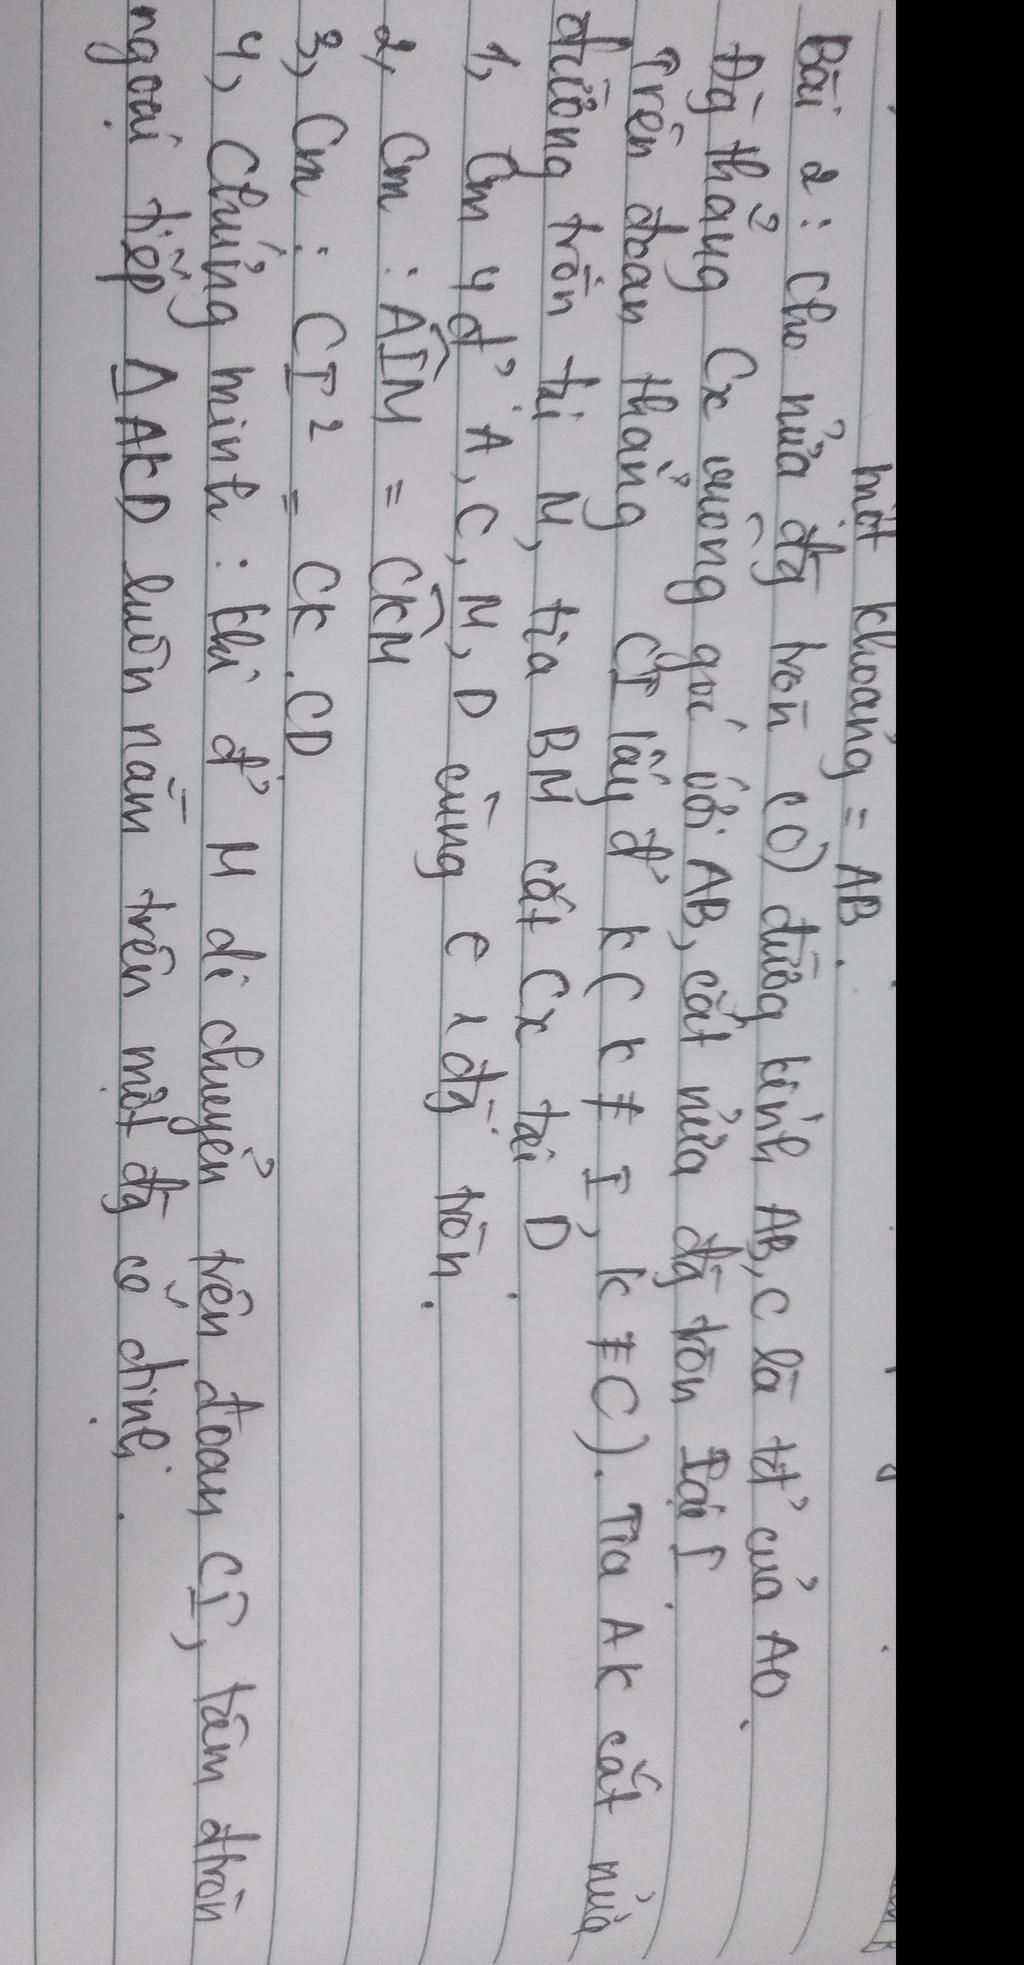 một khoảng = AB.
Bài 2: Cho nửa đg tròn (O) đường kính AB, C là tđ' của AO.
Đg thẳng Cx vuông góc với AB, cắt nửa đg tròn tại I.
Trên đoạn thẳng CI lấy đ' K (K ≠ I, K ≠ C). Tia AK cắt nửa
đường tròn tại M, tia BM cắt Cx tại D.
1, Cm 4 đ' A, C, M, D cùng ∈ 1 đg tròn.
2, Cm: AIM = CKM
3, Cm: CI² = CK.CD
4, Chứng minh: Khi đ' M di chuyển trên đoạn CI, tâm đtròn
ngoại tiếp Δ AKD luôn nằm trên một đg cố định.